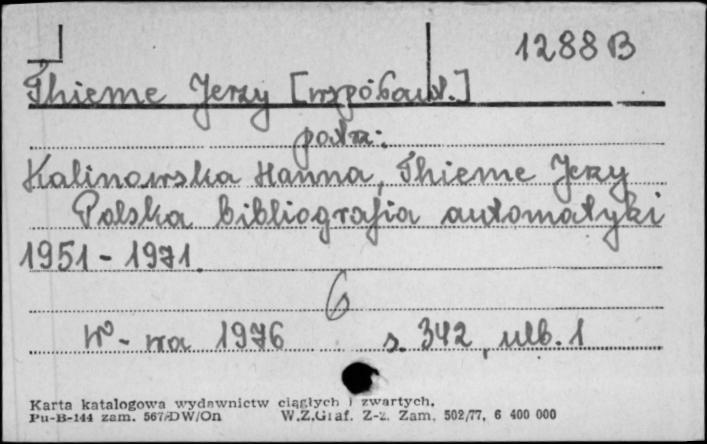 1288 B
Thieme Jerzy [współaut.]
patrz:
Kalinowska Hanna, Thieme Jerzy
Polska bibliografia automatyki
1951 - 1971.
6
W-wa 1976 s. 342, ulb. 1
Karta katalogowa wydawnictw ciągłych i zwartych.
Pu-B-144 zam. 567/DW/On W.Z.Graf. Z-z. Zam. 502/77, 6 400 000